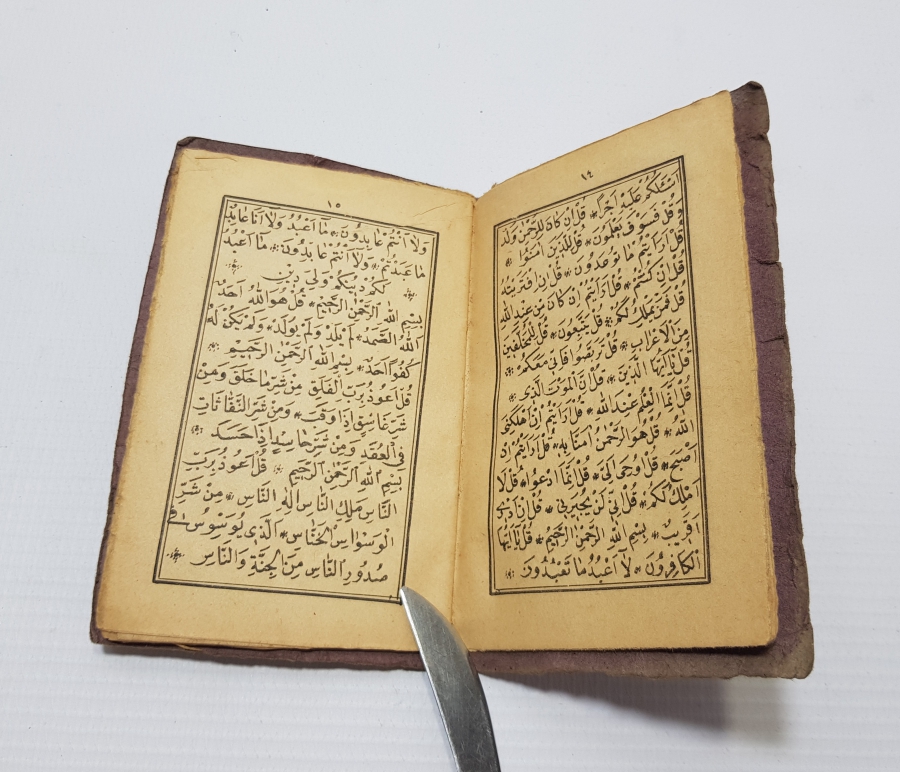 ١٤
نَسْئَلُكُمْ عَلَيْهِ اَجْرًا قُلْ اِنْ كَانَ لِلرَّحْمٰنِ وَلَدٌ
قُلْ فَسَوْفَ تَعْلَمُونَ قُلْ لِلَّذِينَ اٰمَنُوا
قُلْ اَرَاَيْتُمْ مَا تُوعَدُونَ قُلْ اِنِ افْتَرَيْتُهُ
قُلْ اِنْ كُنْتُمْ قُلْ اَرَاَيْتُمْ اِنْ كَانَ مِنْ عِنْدِ اللّٰهِ
قُلْ فَمَنْ يَمْلِكُ لَكُمْ قُلْ تَتَّبِعُونَ قُلْ لِلْمُخَلَّفِينَ
مِنَ الْاَعْرَابِ قُلْ تَرَبَّصُوا فَاِنِّي مَعَكُمْ
قُلْ يَا اَيُّهَا الَّذِينَ قُلْ اِنَّ الْمَوْتَ الَّذِي
قُلْ اِنَّمَا الْعِلْمُ عِنْدَ اللّٰهِ قُلْ اَرَاَيْتُمْ اِنْ اَهْلَكَنِيَ
اللّٰهُ قُلْ هُوَ الرَّحْمٰنُ اٰمَنَّا بِهِ قُلْ اَرَاَيْتُمْ اِنْ
اَصْبَحَ قُلْ اُوحِيَ اِلَيَّ قُلْ اِنَّمَا اَدْعُوا قُلْ لَا
اَمْلِكُ لَكُمْ قُلْ اِنِّي لَنْ يُجِيرَنِي قُلْ اِنْ اَدْرِي
اَقَرِيبٌ بِسْمِ اللّٰهِ الرَّحْمٰنِ الرَّحِيمِ قُلْ يَا اَيُّهَا
الْكَافِرُونَ لَا اَعْبُدُ مَا تَعْبُدُونَ
١٥
وَلَا اَنْتُمْ عَابِدُونَ مَا اَعْبُدُ وَلَا اَنَا عَابِدٌ
مَا عَبَدْتُمْ وَلَا اَنْتُمْ عَابِدُونَ مَا اَعْبُدُ
لَكُمْ دِينُكُمْ وَلِيَ دِينِ
بِسْمِ اللّٰهِ الرَّحْمٰنِ الرَّحِيمِ قُلْ هُوَ اللّٰهُ اَحَدٌ
اَللّٰهُ الصَّمَدُ لَمْ يَلِدْ وَلَمْ يُولَدْ وَلَمْ يَكُنْ لَهُ
كُفُوًا اَحَدٌ بِسْمِ اللّٰهِ الرَّحْمٰنِ الرَّحِيمِ
قُلْ اَعُوذُ بِرَبِّ الْفَلَقِ مِنْ شَرِّ مَا خَلَقَ وَمِنْ
شَرِّ غَاسِقٍ اِذَا وَقَبَ وَمِنْ شَرِّ النَّفَّاثَاتِ
فِي الْعُقَدِ وَمِنْ شَرِّ حَاسِدٍ اِذَا حَسَدَ
بِسْمِ اللّٰهِ الرَّحْمٰنِ الرَّحِيمِ قُلْ اَعُوذُ بِرَبِّ
النَّاسِ مَلِكِ النَّاسِ اِلٰهِ النَّاسِ مِنْ شَرِّ
الْوَسْوَاسِ الْخَنَّاسِ اَلَّذِي يُوَسْوِسُ فِي
صُدُورِ النَّاسِ مِنَ الْجِنَّةِ وَالنَّاسِ